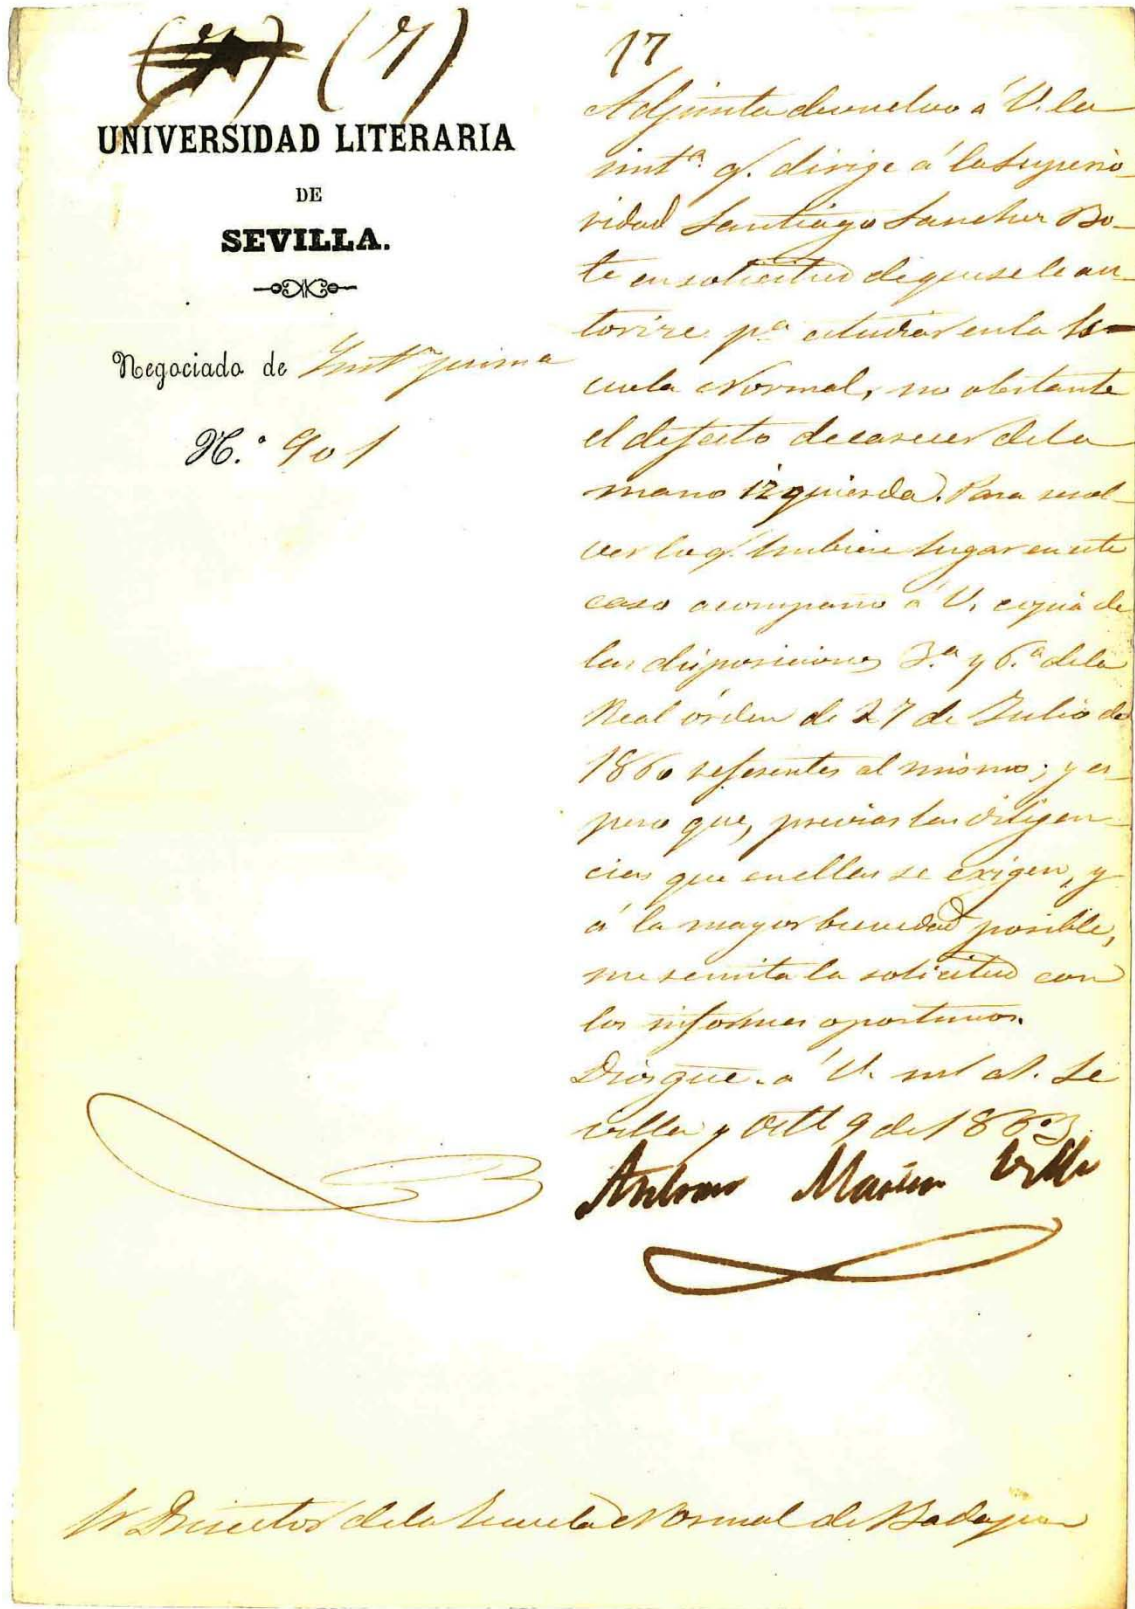 (7)
17
UNIVERSIDAD LITERARIA
DE
SEVILLA.
Negociado de Instn prima
N.º 901
Adjunta devuelvo á V. la
inst.ª q. dirige á la Superio-
ridad Santiago Sanchez Bo-
te en solicitud de que se le au-
torize pª estudiar en la Es-
cuela Normal, no obstante
el defecto de carecer de la
mano izquierda. Para resol-
ver lo q. hubiere lugar en este
caso acompaño á V. copia de
las disposiciones 3.ª y 6.ª de la
Real órden de 27 de Julio de
1860 referentes al mismo; y es-
pero que, previas las diligen-
cias que en ellas se exigen, y
á la mayor brevedad posible,
me remita la solicitud con
los informes oportunos.
Dios gue. á V. ms. as. Se
villa y 9 de 1863
Antonio Martin Villa
Sr Director de la Escuela Normal de Badajoz